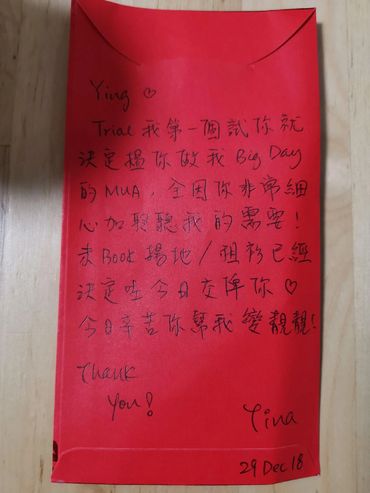 Ying ♡
Trial 我第一個試你就
決定搵你做我 Big Day
的 MUA，全因你非常細
心加聆聽我的需要！
未Book 場地/租衫已經
決定咗今日交俾你♡
今日辛苦你幫我變靚靚！
Thank
You!
Yina
29 Dec 18